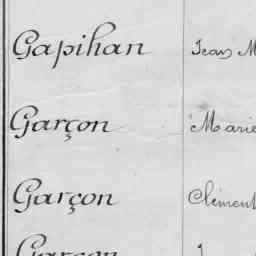 Gapihan Jean M
Garçon Marie
Garçon Clément
Garçon J